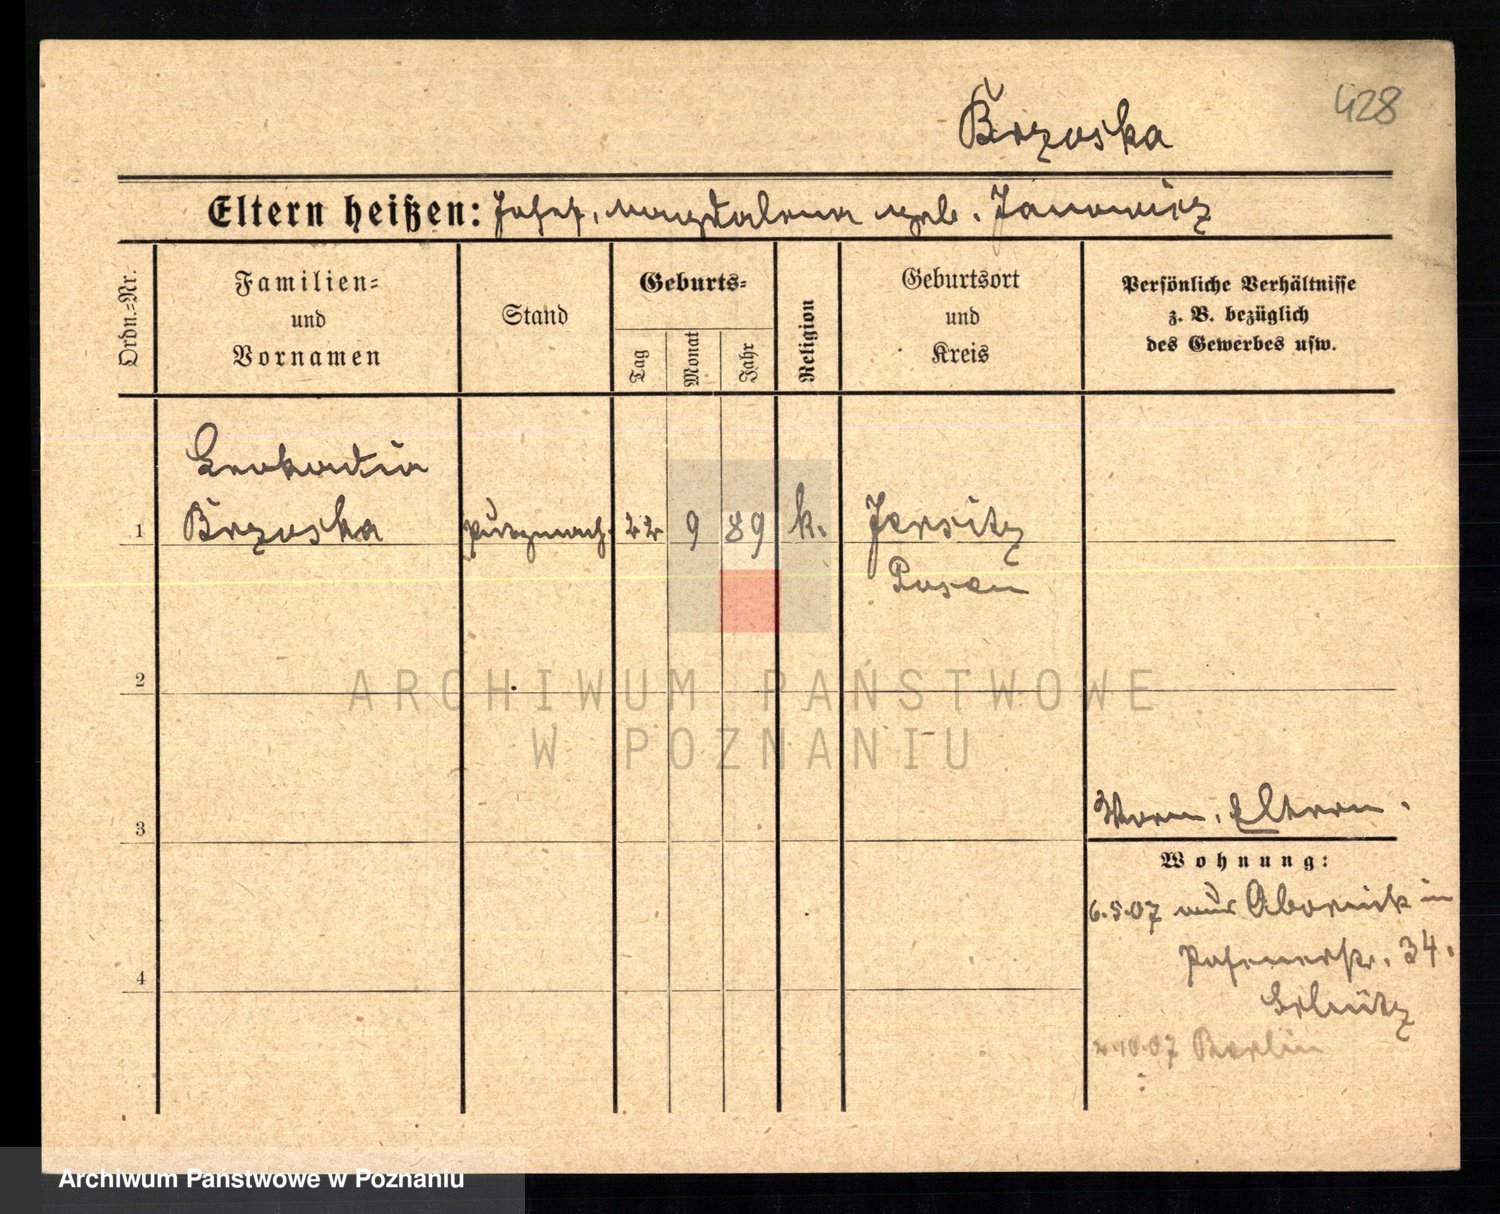 428
Brzoska
Eltern heißen: Josef, Magdalena geb. Janowicz
Ordn.-Nr.
Familien-
und
Vornamen
Stand
Geburts-
Tag
Monat
Jahr
Religion
Geburtsort
und
Kreis
Persönliche Verhältnisse
z. B. bezüglich
des Gewerbes usw.
Leokadia
1 Brzoska Putzmach. 22 9 89 k. Jersitz
Posen
2
ARCHIWUM PAŃSTWOWE
W POZNANIU
Eltern.
3
Wohnung:
6.5.07 aus in
Posenerstr. 34.
4
10.07 Berlin
Archiwum Państwowe w Poznaniu